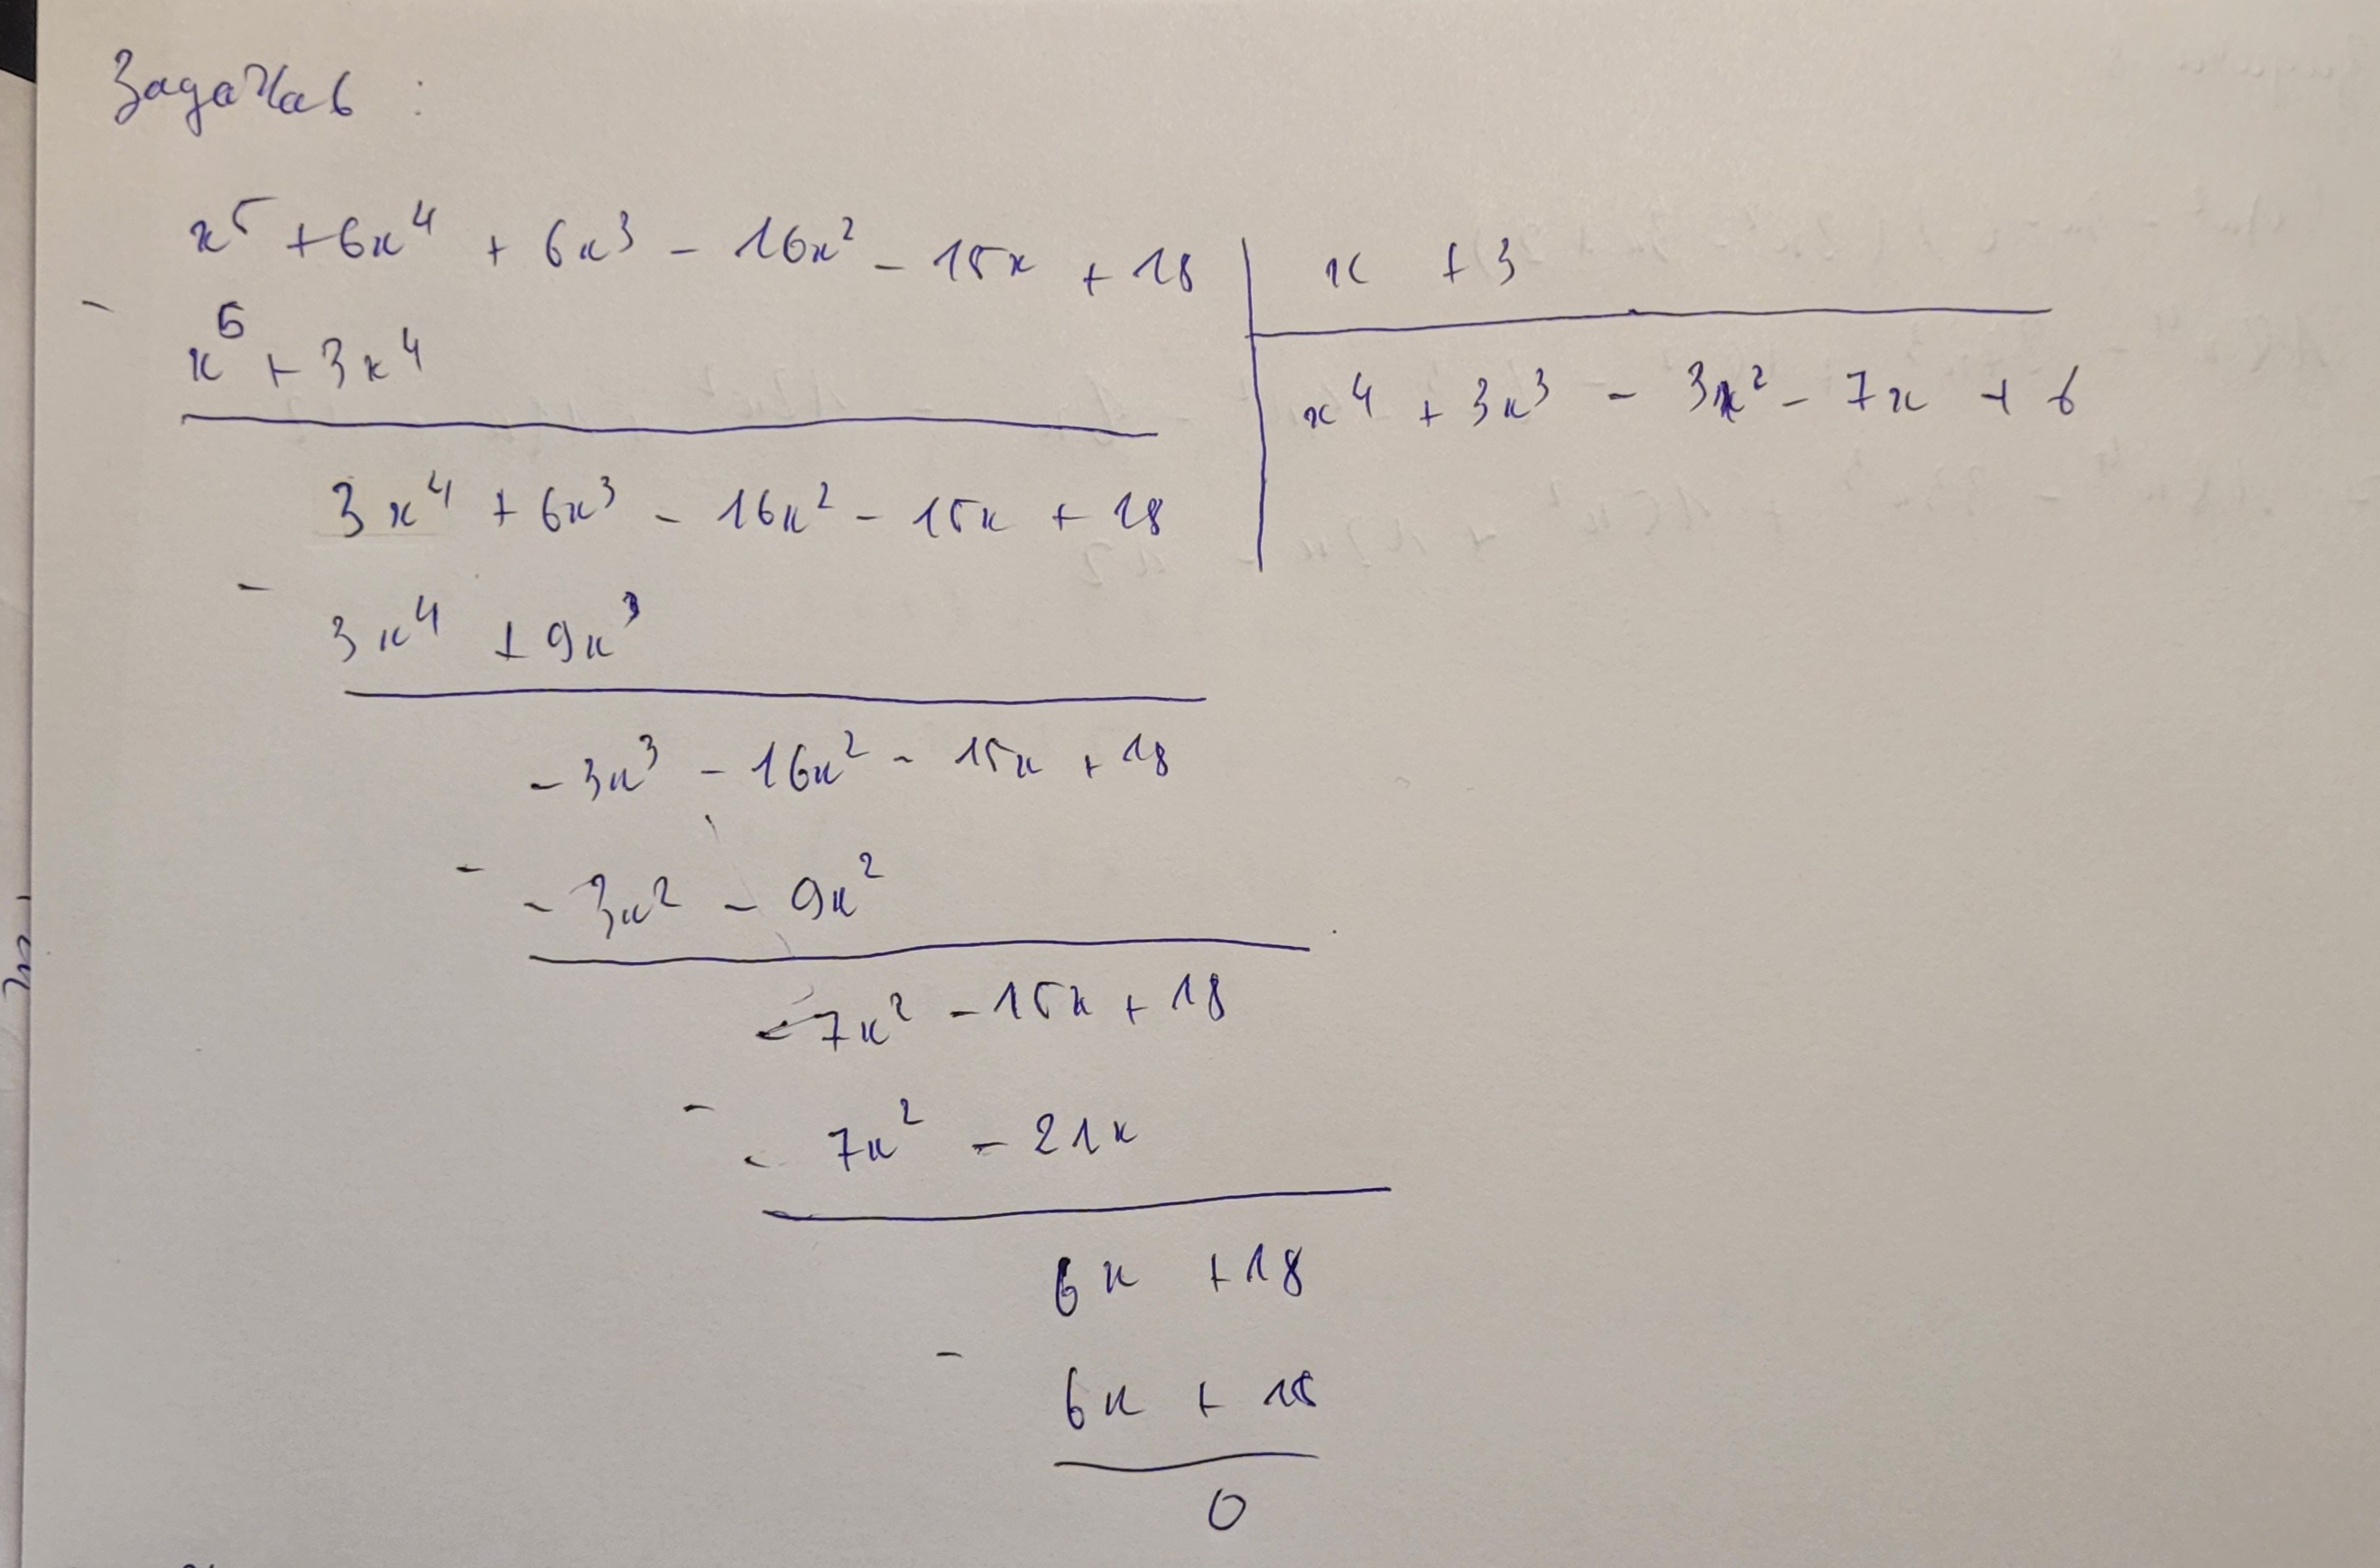 Задача 6 :
x⁵ + 6x⁴ + 6x³ - 16x² - 15x + 18 | x + 3
- x⁵ + 3x⁴
x⁴ + 3x³ - 3x² - 7x + 6
3x⁴ + 6x³ - 16x² - 15x + 18
- 3x⁴ + 9x³
- 3x³ - 16x² - 15x + 18
- - 3x² - 9x²
- 7x² - 15x + 18
- - 7x² - 21x
6x + 18
- 6x + 18
0